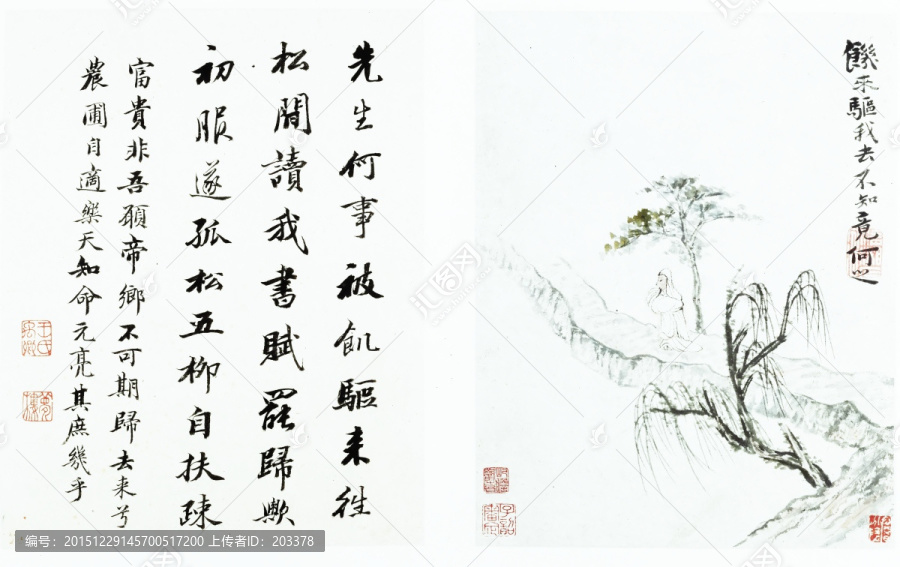 饑来驅我去不知竟何之
先生何事被飢驅来往
松間讀我書賦罷歸歟
初服遂孤松五柳自扶疎
富貴非吾願帝鄉不可期歸去来兮
農圃自適樂天知命元亮其庶幾乎
编号：20151229145700517200 上传者ID：203378